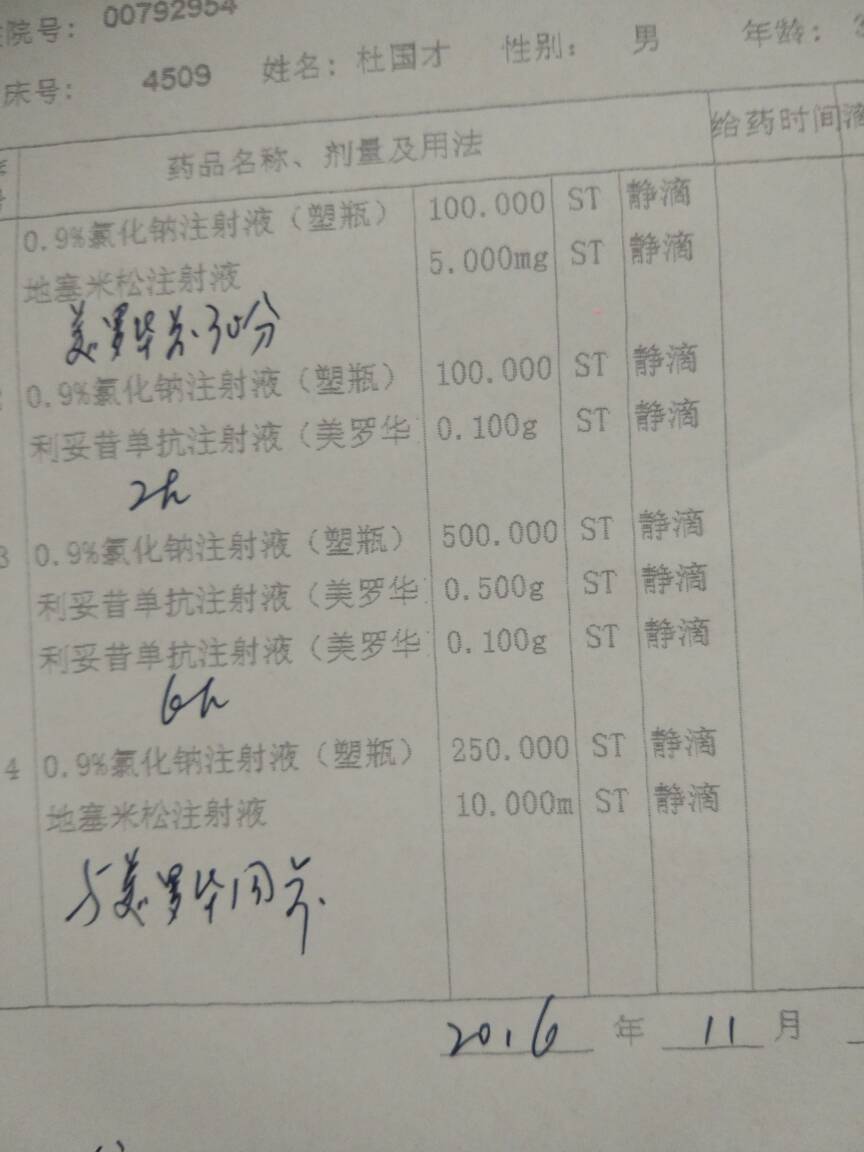 院号： 00792954
床号： 4509 姓名： 杜国才 性别： 男 年龄：
药品名称、剂量及用法 给药时间 滴
0.9%氯化钠注射液（塑瓶） 100.000 ST 静滴
地塞米松注射液 5.000mg ST 静滴
美罗华前30分
0.9%氯化钠注射液（塑瓶） 100.000 ST 静滴
利妥昔单抗注射液（美罗华 0.100g ST 静滴
2h
3 0.9%氯化钠注射液（塑瓶） 500.000 ST 静滴
利妥昔单抗注射液（美罗华 0.500g ST 静滴
利妥昔单抗注射液（美罗华 0.100g ST 静滴
6h
4 0.9%氯化钠注射液（塑瓶） 250.000 ST 静滴
地塞米松注射液 10.000m ST 静滴
与美罗华同
2016 年 11 月